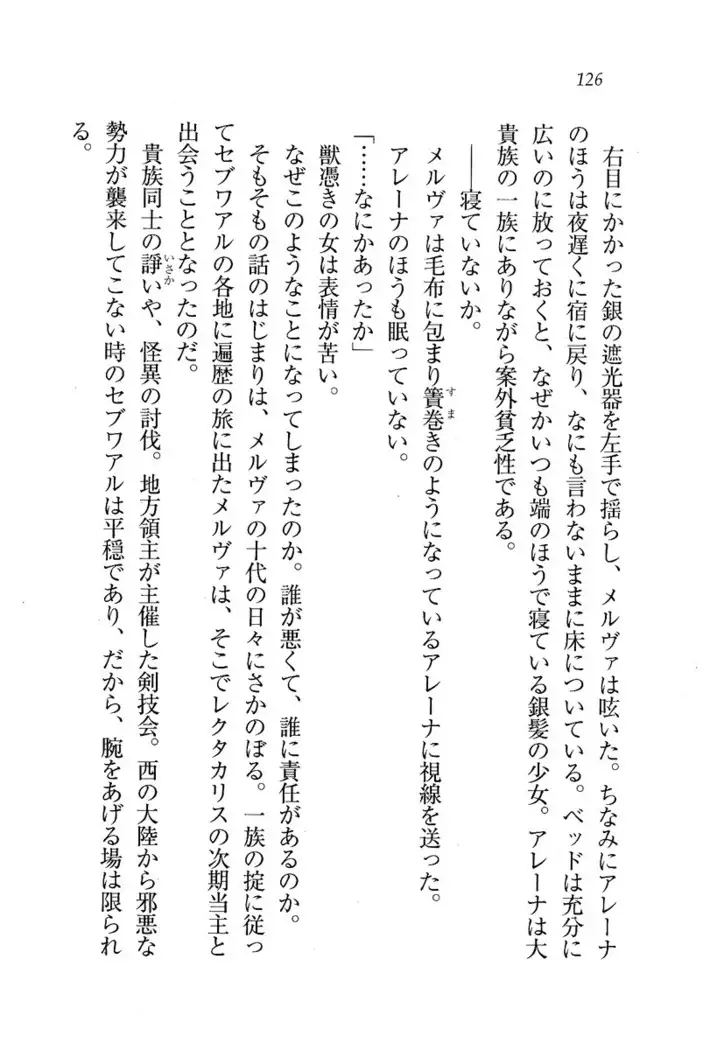 126
右目にかかった銀の遮光器を左手で揺らし、メルヴァは呟いた。ちなみにアレーナ
のほうは夜遅くに宿に戻り、なにも言わないままに床についている。ベッドは充分に
広いのに放っておくと、なぜかいつも端のほうで寝ている銀髪の少女。アレーナは大
貴族の一族にありながら案外貧乏性である。
――寝ていないか。
メルヴァは毛布に包まり簀巻きのようになっているアレーナに視線を送った。
アレーナのほうも眠っていない。
「……なにかあったか」
獣憑きの女は表情が苦い。
なぜこのようなことになってしまったのか。誰が悪くて、誰に責任があるのか。
そもそもの話のはじまりは、メルヴァの十代の日々にさかのぼる。一族の掟に従っ
てセブワアルの各地に遍歴の旅に出たメルヴァは、そこでレクタカリスの次期当主と
出会うこととなったのだ。
貴族同士の諍いや、怪異の討伐。地方領主が主催した剣技会。西の大陸から邪悪な
勢力が襲来してこない時のセブワアルは平穏であり、だから、腕をあげる場は限られ
る。